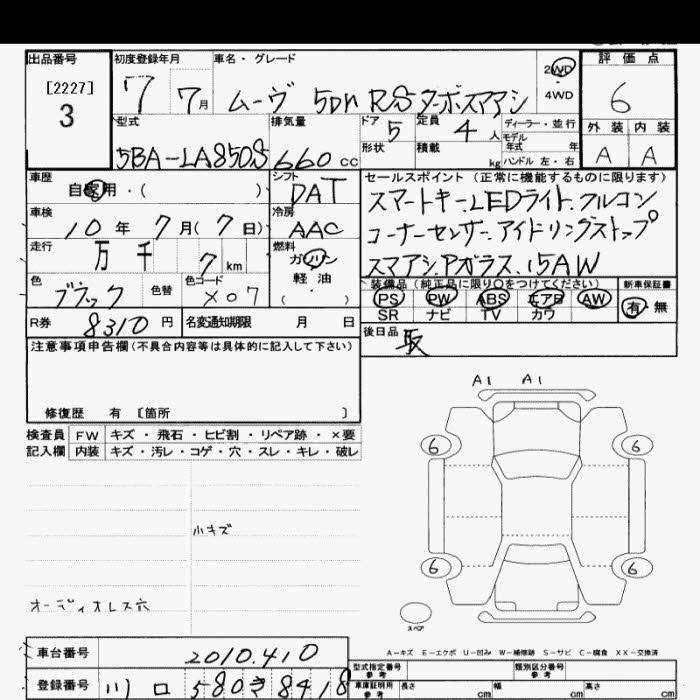 出品番号 初度登録年月 車名・グレード 評価点
[2227]
3
7 7月 ムーヴ 5DR RSターボスマアシ 2WD ・ 4WD 6
型式 排気量 ドア 5 定員 4人 ディーラー・並行 外装 内装
5BA-LA850S 660cc 形状 積載 kg モデル年式 年 ハンドル 左・右 A A
車歴 自家用・( ) シフト DAT セールスポイント(正常に機能するものに限ります)
車検 10年 7月(7日) 冷房 AAC スマートキー.LEDライト.クルコン
コーナーセンサー.アイドリングストップ
走行 万 千 7km 燃料 ガソリン 軽油 ( ・ ) スマアシ.Pガラス.15AW
色 ブラック 色替 色コード X07 装備品(純正品に限り○をつけてください) 新車保証書
PS PW ABS エアB AW 有・無
SR ナビ TV カワ
R券 8310円 名変通知期限 月 日 後日品 取
注意事項申告欄(不具合内容等は具体的に記入して下さい)
修復歴 有 〔箇所 〕
検査員 FW キズ・飛石・ヒビ割・リペア跡・×要
記入欄 内装 キズ・汚レ・コゲ・穴・スレ・キレ・破レ
小キズ
オーディオレス穴
A1 A1
6 6
6 6
スペア
A-キズ E-エクボ U-凹み W-補修跡 S-サビ C-腐食 XX-交換済
車台番号 2010410 型式指定番号 参考 類別区分番号 参考
登録番号 川口 580き8418 車庫証明用 参考 長さ cm 幅 cm 高さ cm